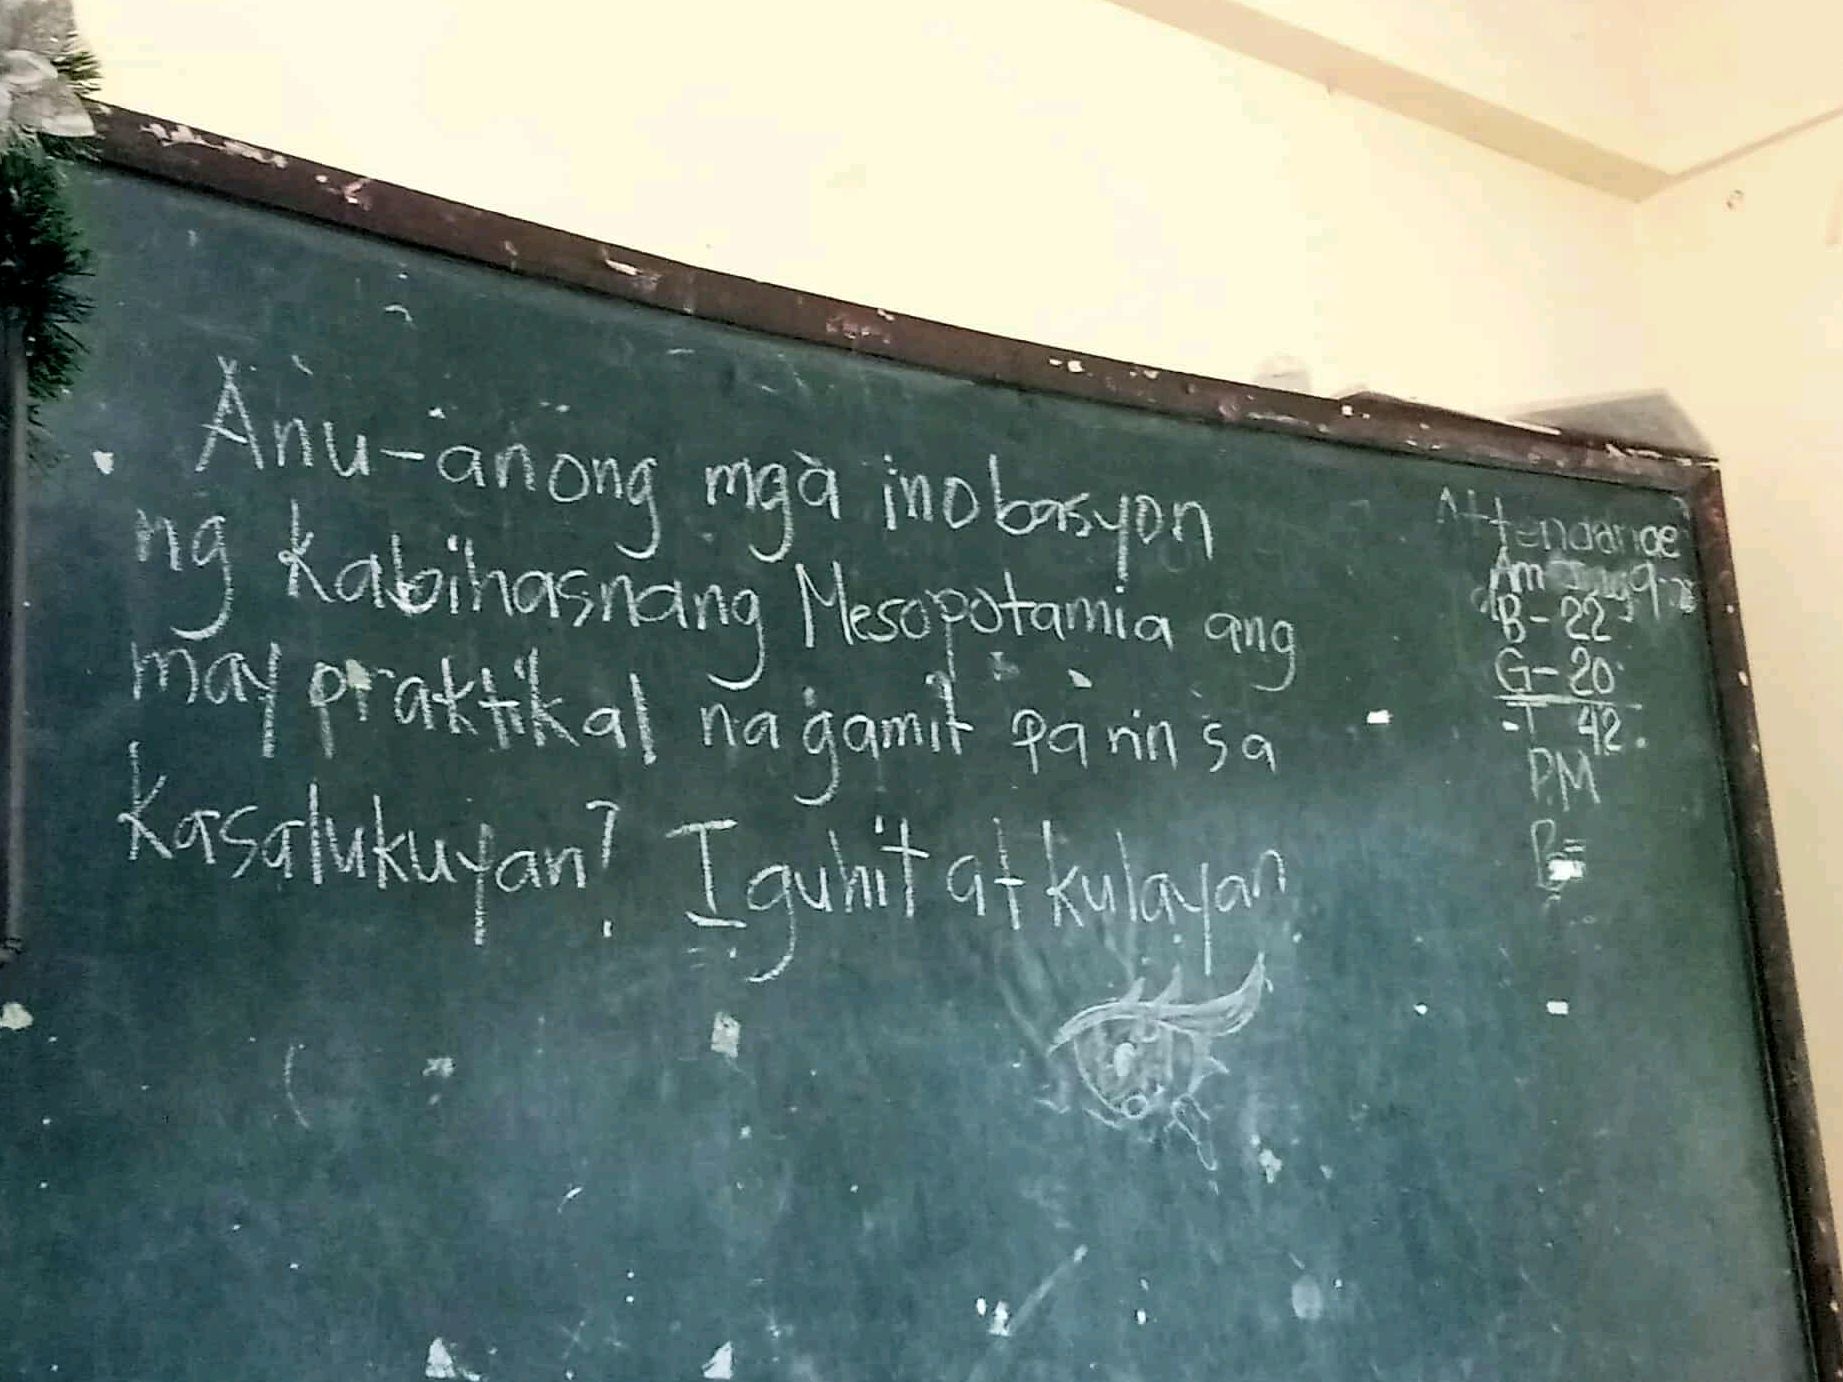 Anu-anong mga inobasyon
ng kabihasnang Mesopotamia ang
may praktikal na gamit parin sa
kasalukuyan? Iguhit at kulayan
Attendance
Am
B - 22
G - 20
T 42.
PM
B=